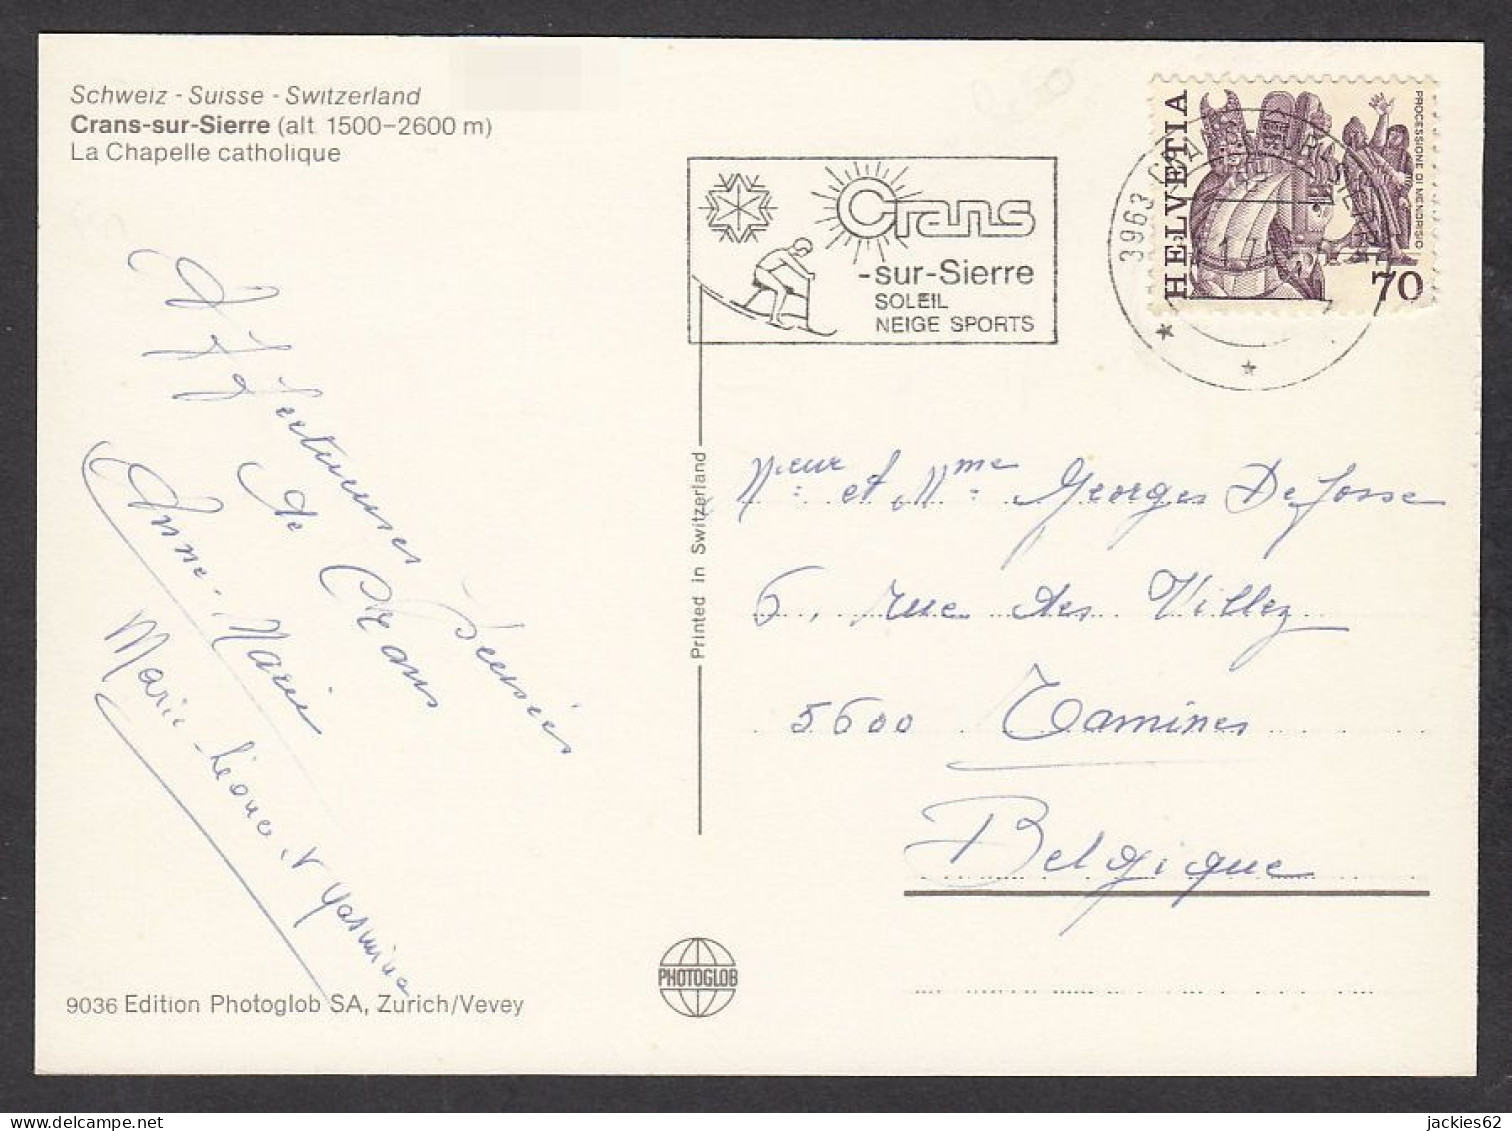 Schweiz - Suisse - Switzerland
Crans-sur-Sierre (alt. 1500-2600 m)
La Chapelle catholique
Crans
-sur-Sierre
SOLEIL
NEIGE SPORTS
3963
HELVETIA
PROCESSIONE DI MENDRISIO
70
Affectueuses Pensées
de Crans
Anne-Marie
Marie-Léonce
Yasmina
Printed in Switzerland
et Mme Georges De Josse
6, rue des Villez
5600 Tamines
Belgique
PHOTOGLOB
9036 Edition Photoglob SA, Zurich/Vevey
jackies62